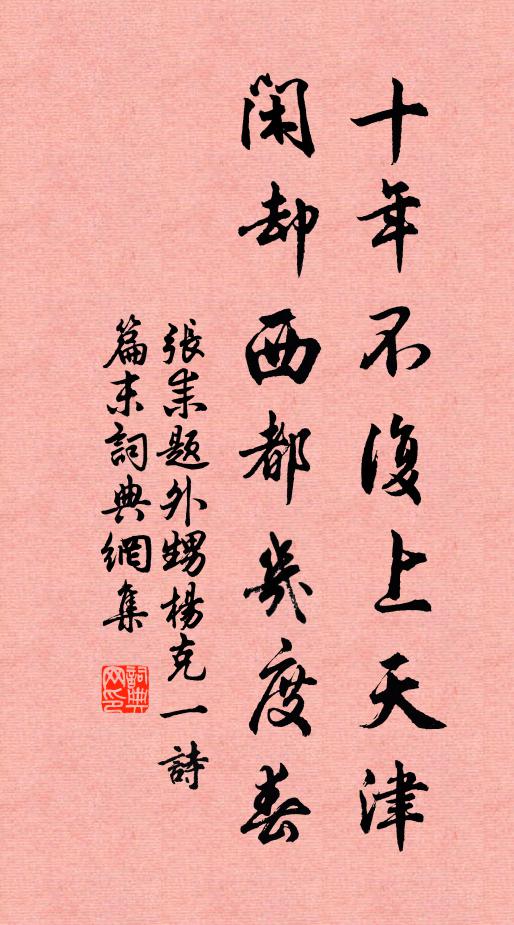 十年不復上天津
閑却西都幾度春
張耒題外甥楊克一詩
篇末詞典網集
詞典网印